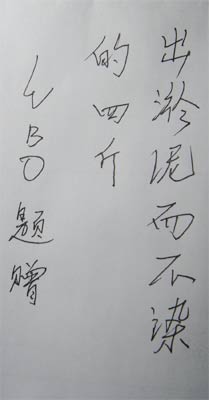 出淤泥而不染
的四斤
LBO 题赠